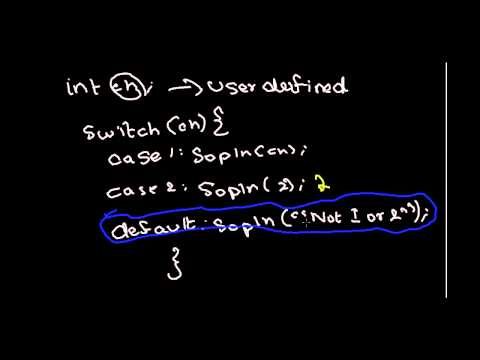 int ch; → user defined
switch(ch){
case 1: Sopln(ch);
case 2: Sopln(2); 2
default: Sopln("Not 1 or 2");
}